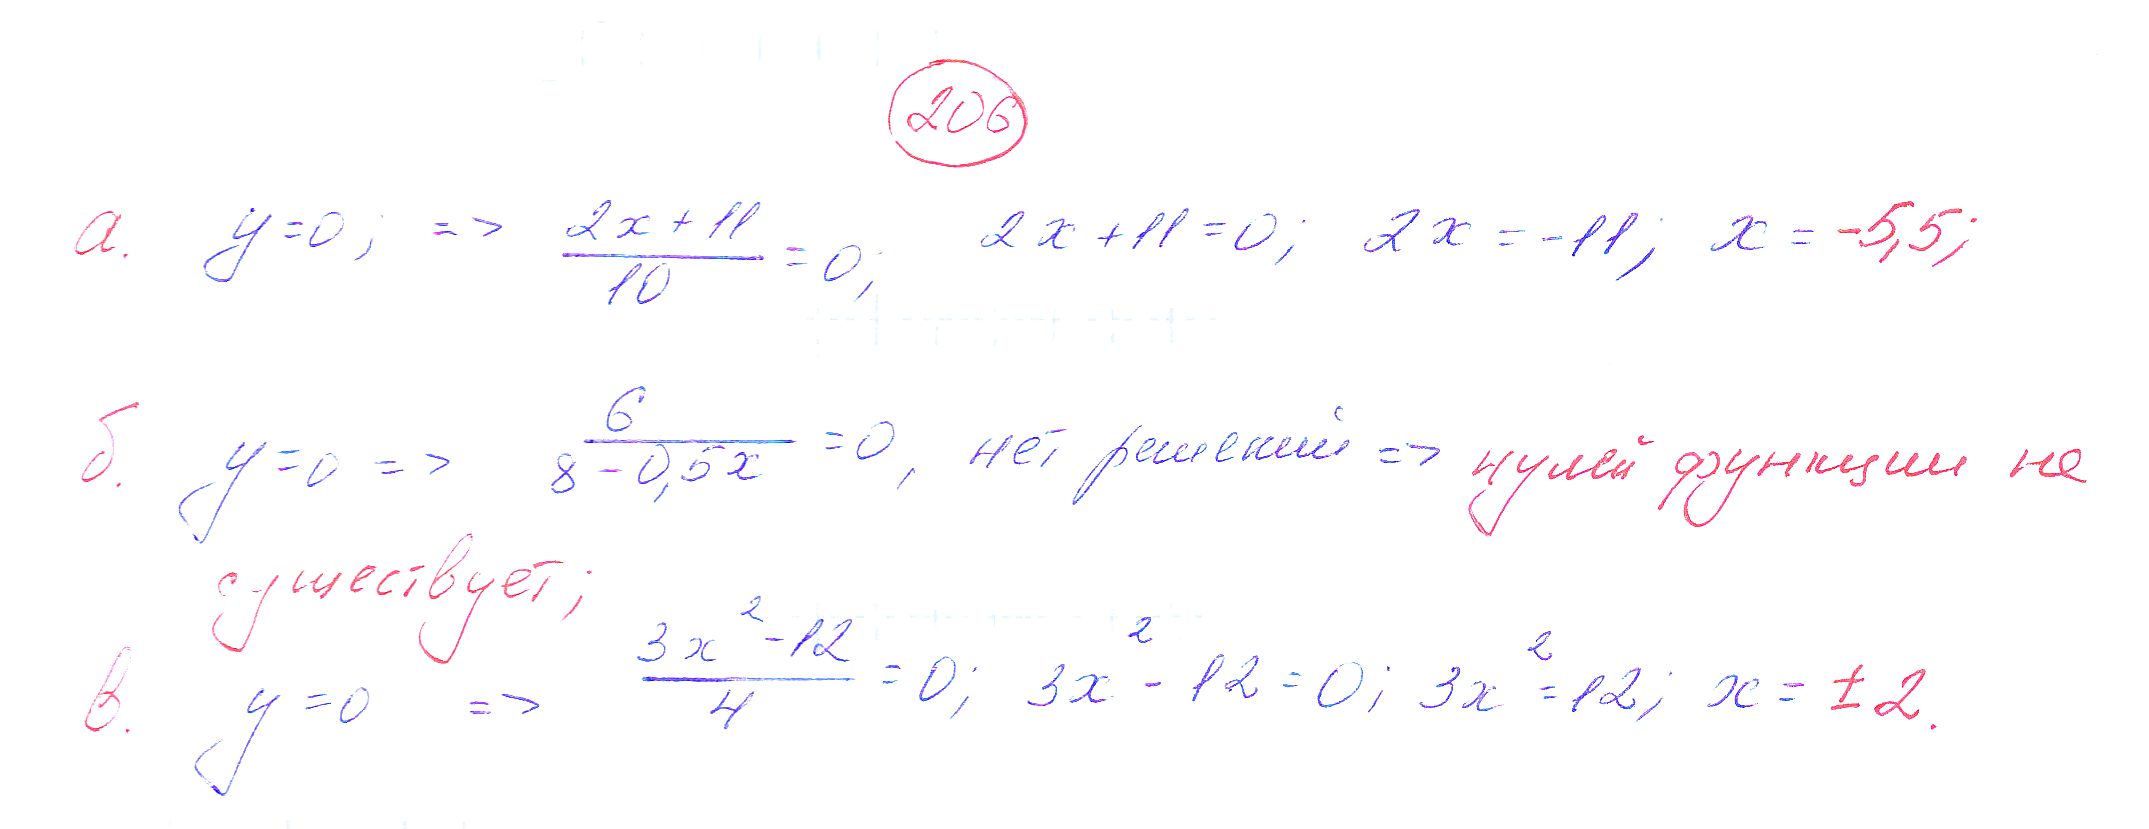 206
а. y=0; => (2x+11)/10 =0; 2x+11=0; 2x=-11; x=-5,5;
б. y=0 => 6/(8-0,5x) =0, нет решений => нулей функции не
существует;
в. y=0 => (3x²-12)/4 =0; 3x²-12=0; 3x²=12; x=±2.